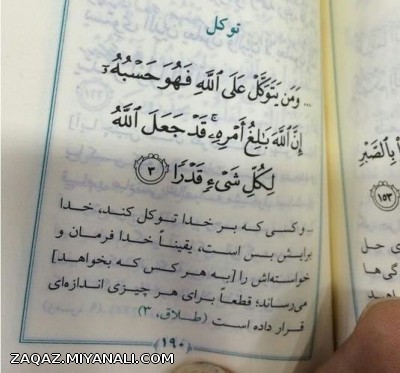 توكل
... وَمَن يَتَوَكَّلْ عَلَى ٱللَّهِ فَهُوَ حَسْبُهُۥٓ
إِنَّ ٱللَّهَ بَٰلِغُ أَمْرِهِۦۚ قَدْ جَعَلَ ٱللَّهُ
لِكُلِّ شَىْءٍ قَدْرًا ﴿٣﴾
... و کسی که بر خدا توکل کند، خدا
برایش بس است، یقیناً خدا فرمان و
خواسته‌اش را [به هر کس که بخواهد]
می‌رساند؛ قطعاً برای هر چیزی اندازه‌ای
قرار داده است (طلاق، ۳)
۱۹۰
بِٱلصَّبْرِ
﴿١٥٣﴾
ی حل
ZAQAZ.MIYANALI.COM